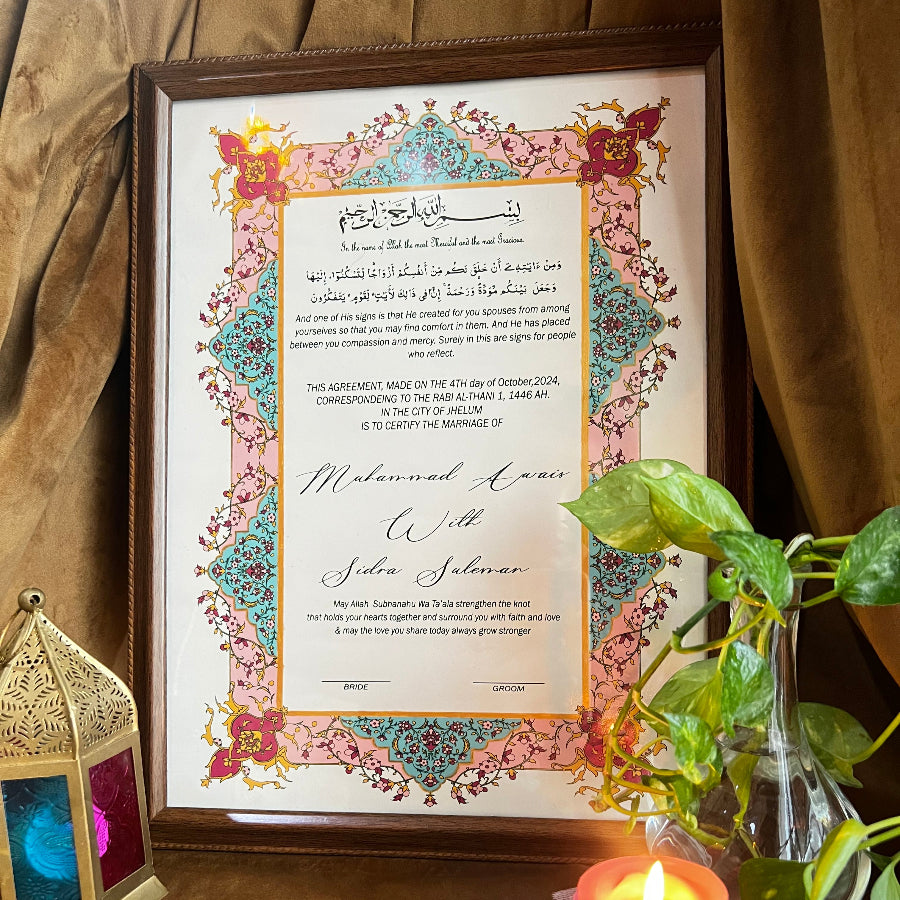 بِسْمِ اللهِ الرَّحْمٰنِ الرَّحِيْمِ
In the name of Allah the most Merciful and the most Gracious.
وَمِنْ ءَايَـٰتِهِۦٓ أَنْ خَلَقَ لَكُم مِّنْ أَنفُسِكُمْ أَزْوَٰجًا لِّتَسْكُنُوٓا۟ إِلَيْهَا
وَجَعَلَ بَيْنَكُم مَّوَدَّةً وَرَحْمَةً ۚ إِنَّ فِى ذَٰلِكَ لَـَٔايَـٰتٍ لِّقَوْمٍ يَتَفَكَّرُونَ
And one of His signs is that He created for you spouses from among
yourselves so that you may find comfort in them. And He has placed
between you compassion and mercy. Surely in this are signs for people
who reflect.
THIS AGREEMENT, MADE ON THE 4TH day of October,2024,
CORRESPONDEING TO THE RABI AL-THANI 1, 1446 AH.
IN THE CITY OF JHELUM
IS TO CERTIFY THE MARRIAGE OF
Muhammad Awais
With
Sidra Suleman
May Allah Subhanahu Wa Ta'ala strengthen the knot
that holds your hearts together and surround you with faith and love
& may the love you share today always grow stronger
BRIDE GROOM